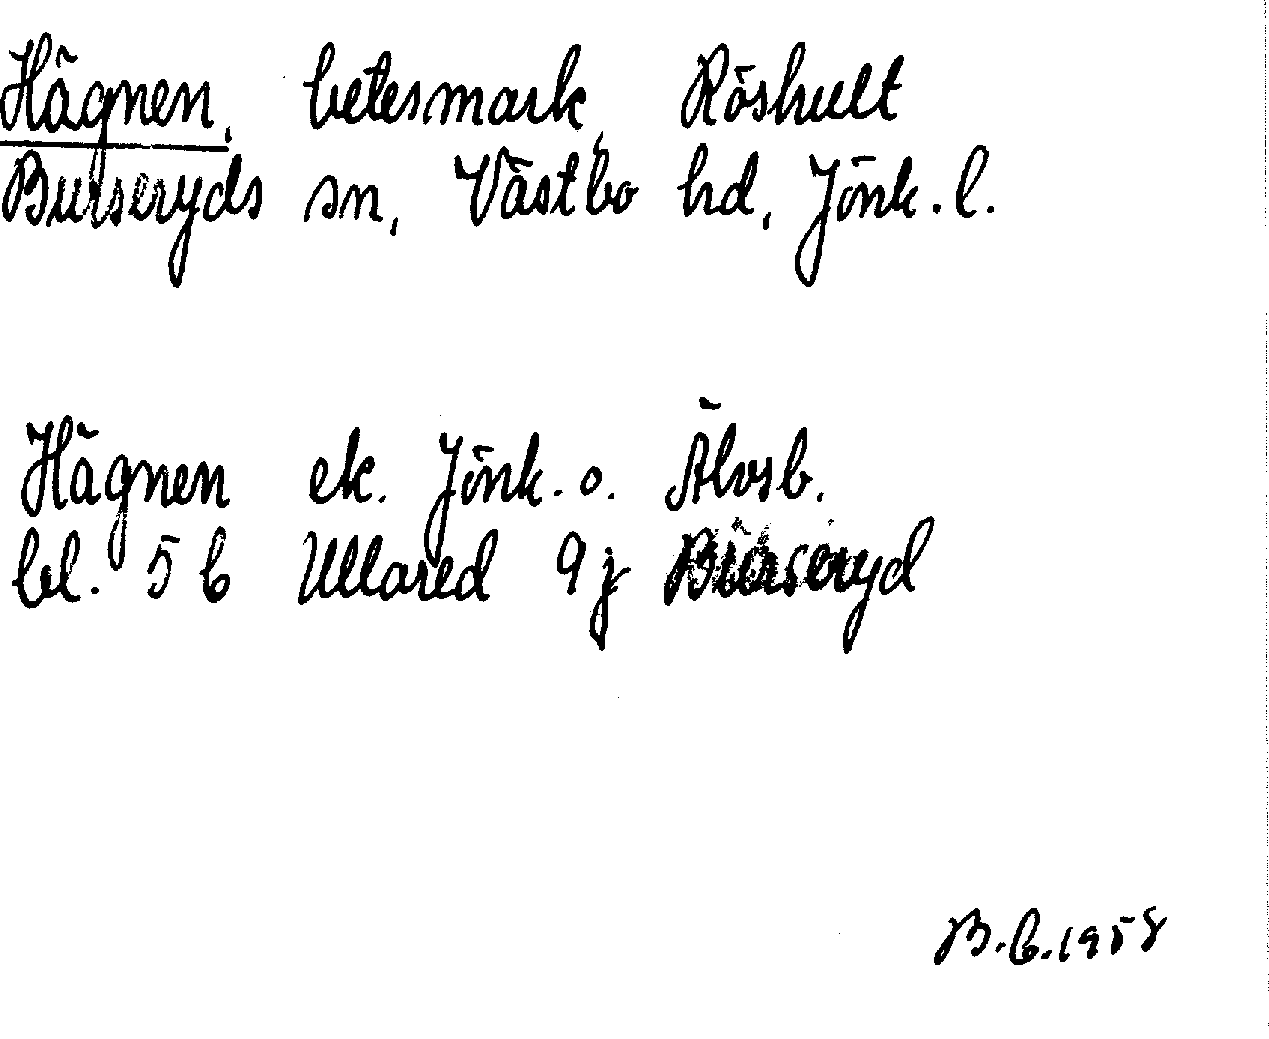 Hägnen, betesmark, Röshult
Burseryds sn, Västbo hd, Jönk.l.
Hägnen ek. Jönk. o. Älvsb.
bl. 5 b Ullared 9 j Burseryd
B.b.1958